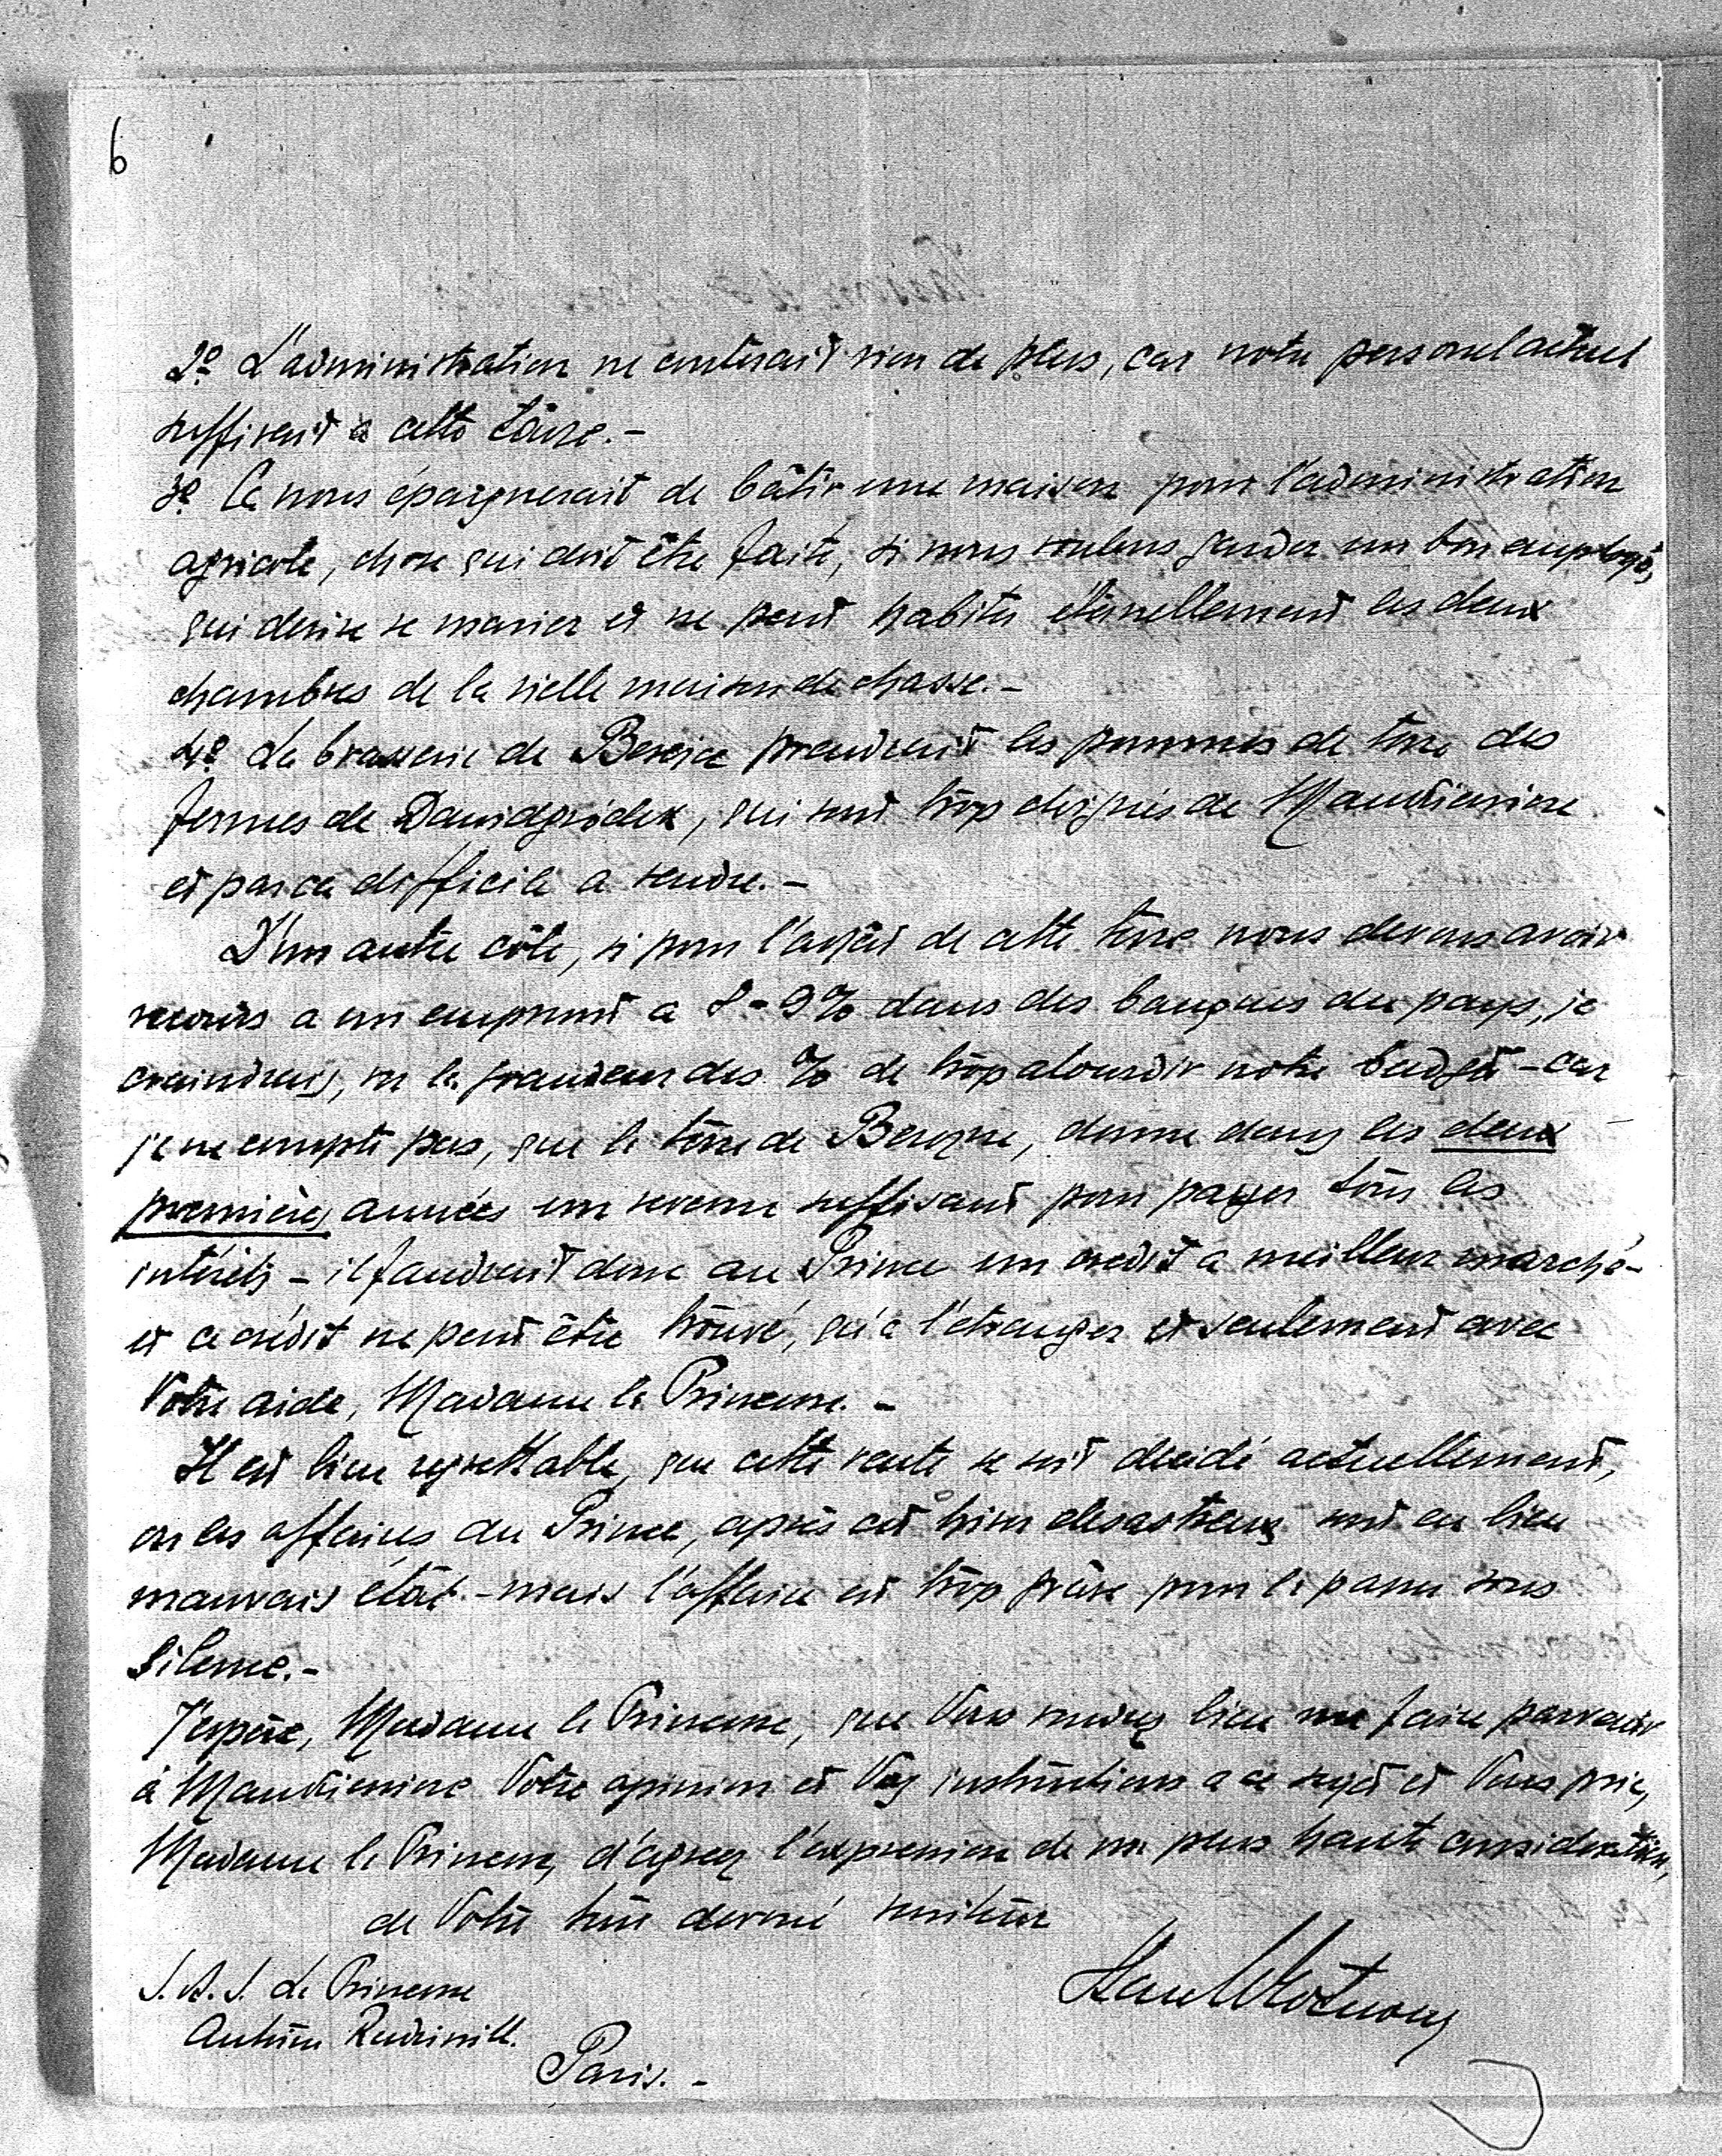 6
2º L'administration ne couterait rien de plus, car notre personel actuel
suffirait a cette tâche.-
3º Ca nous épargnerait de bâtir une maison pour l'administration
agricole, chose qui doit être faite, si nous voulons garder un bon employé,
qui desire se marier et ne peut habiter éternellement les deux
chambres de la vielle maison de chasse.-
4º La brasserie de Bereźne prendrait les pommes de terre des
fermes de Dawidgródek, qui sont trop eloignés de Mankiewicze
et par ca difficile a vendre.-
D'un autre côté, si pour l'achât de cette terre nous devons avoir
recours a un emprunt a 8-9% dans des banques du pays, je
craindrais, vu la grandeur des % de trop alourdir notre budgét - car
je ne compte pas, que la terre de Berezne, donne dans les deux
premières années un revenu suffisant pour payer tous les
intérêts - il faudrait donc au Prince un credit a meilleur marché -
et ce crédit ne peut être trouvé, qu'a l'étranger et seulement avec
Votre aide, Madame la Princesse.-
Il est bien regrettable, que cette vente se soit decidé actuellement,
ou les affaires du Prince, après cet hiver desastreux sont en bien
mauvais étât - mais l'affaire est trop grâve pour la passer sous
silence.-
J'espère, Madame la Princesse, que Vous voudrez bien me faire parvenir
à Mankiewicze Votre opinion et Vos instructions a ce sujet et Vous prie,
Madame la Princesse, d'agreer l'expression de ma plus haute consideration,
de Votre tout devoué serviteur
S. A. S. La Princesse
Antoine Radziwill.
Paris.-